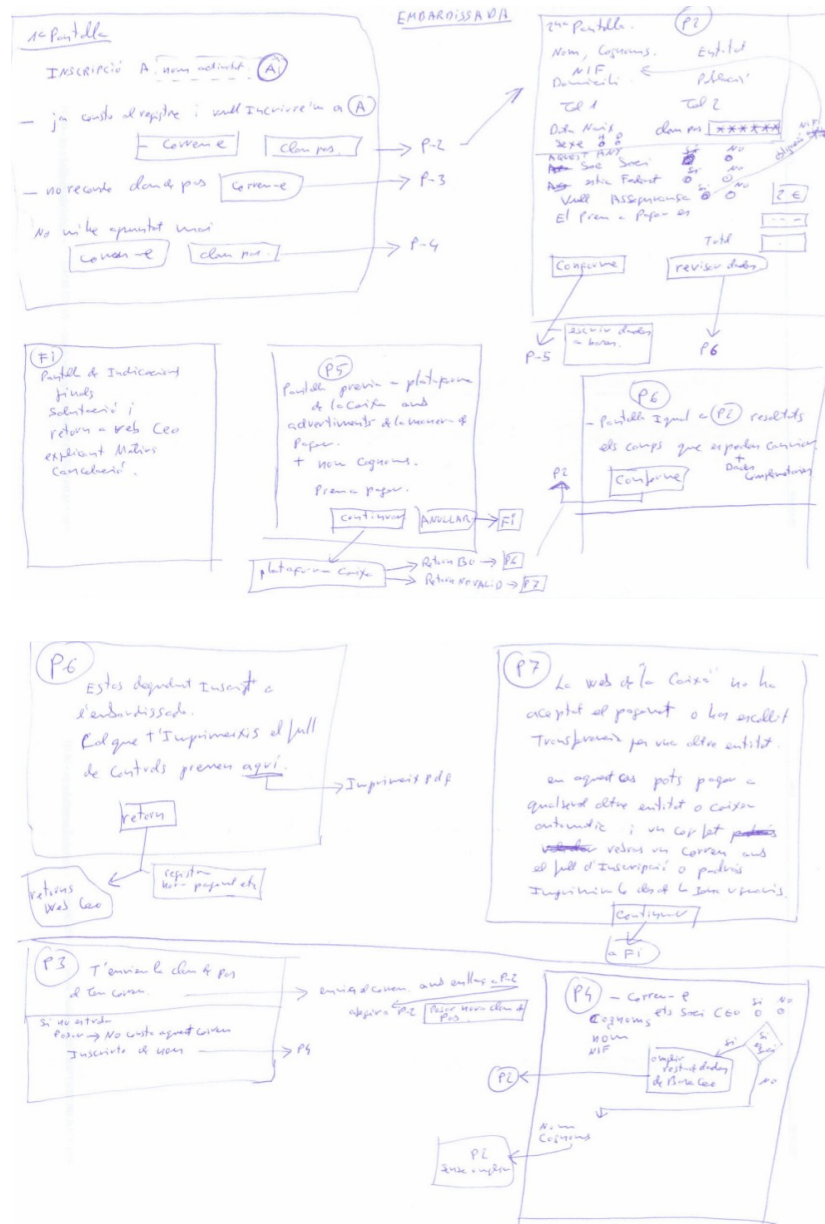 EMBARDISSADA
1ª Pantalla
INSCRIPCIÓ A nom activitat (A)
- ja consto al registre i vull Inscriure'm a (A)
- Correu-e clau pas. → P-2
- no recordo clau de pas Correu-e → P-3
No m'he apuntat mai
Correu-e clau pas. → P-4
2ª Pantalla. P2
Nom, Cognoms. Entitat
NIF
Domicili Població
Tel 1 Tel 2
Data Naix clau pas ******
sexe
NIF
AQUEST ANY Si No
Soc Soci
estic Federat Si No
Vull Assegurança Si No 2 €
El Preu a Pagar es
Total
Conforme revisar dades
escriure dades
a bases.
P-5 P6
Fi
Pantalla de Indicacions
finals
Salutació i
retorn a web Ceo
explicant Motius
Cancelació.
P5
Pantalla previa a plataforma
de la Caixa amb
advertiments de la manera de
Pagar.
+ nom Cognoms.
Preu a pagar.
Continuar ANULLAR → Fi
plataforma Caixa
Retorn BO → P6
Retorn NO VALID → P7
P6
- Pantalla Igual a P2 resaltats
els camps que es poden canviar.
+
Dades
Complementaries
Conforme
P2
P6
Estas degudament Inscrit a
l'embardissada.
Cal que t'Imprimeixis el full
de Controls prement aquí.
Imprimeix pdf
retorn
registra
hora pagament etc
retorns
Web Ceo
P7
La web de "la Caixa" no ha
aceptat el pagament o has escollit
Transferencia per una altre entitat.
en aquest cas pots pagar a
qualsevol altre entitat o caixer
automatic i un cop fet
rebras un Correu amb
el full d'Inscripció o podràs
Imprimir-lo des de la zona usuaris.
Continuar
a Fi
P3
T'enviem la clau de pas
al teu correu.
enviar el correu amb enllaç a P-2
Posar nova clau de
Pas.
si no entrada
Posar → No consta aquest Correu
Inscriute de nou → P4
P4
- Correu-e
ets Soci CEO si No
Cognoms
nom
NIF
Si
es
soci
si
NO
omplir
resta de dades
de Base Ceo
P2
Nom
Cognoms
P2
Sense omplir